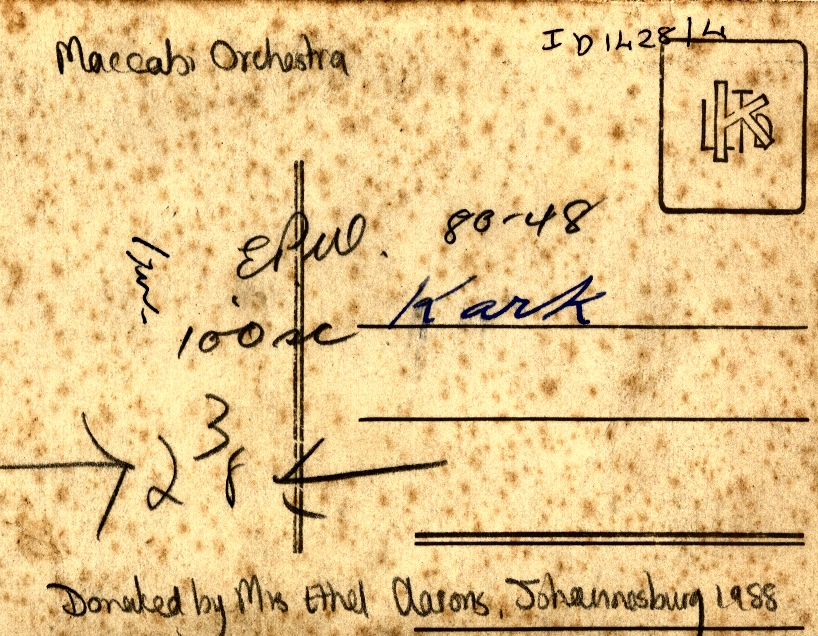 Maccabi Orchestra
ID1428/4
80-48
Kark
100 sc
2 3/8
Donated by Mrs Ethel Aarons, Johannesburg 1988